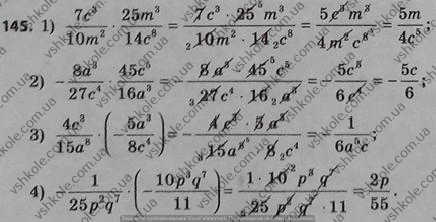 145. 1) 7c³/10m² · 25m³/14c⁸ = 7c³ · 25⁵ m³/₂10m² · 14₂c⁸ = 5c³m³/4m²c⁸⁵ = 5m/4c⁵;
2) - 8a³/27c⁴ · 45c⁵/16a³ = - 8a³ · 45⁵c⁵/₃27c⁴ · 16₂a³ = - 5c⁵/6c⁴ = - 5c/6;
3) 4c³/15a⁸ · (- 5a³/8c⁴) = - 4c³ · 5a³/₃15a⁸⁵ · 8₂c⁴ = 1/6a⁵c;
4) 1/25p²q⁷ · (- 10p³q⁷/11) = 1 · 10² p³q⁷/₅25p²q⁷ · 11 = 2p/55.